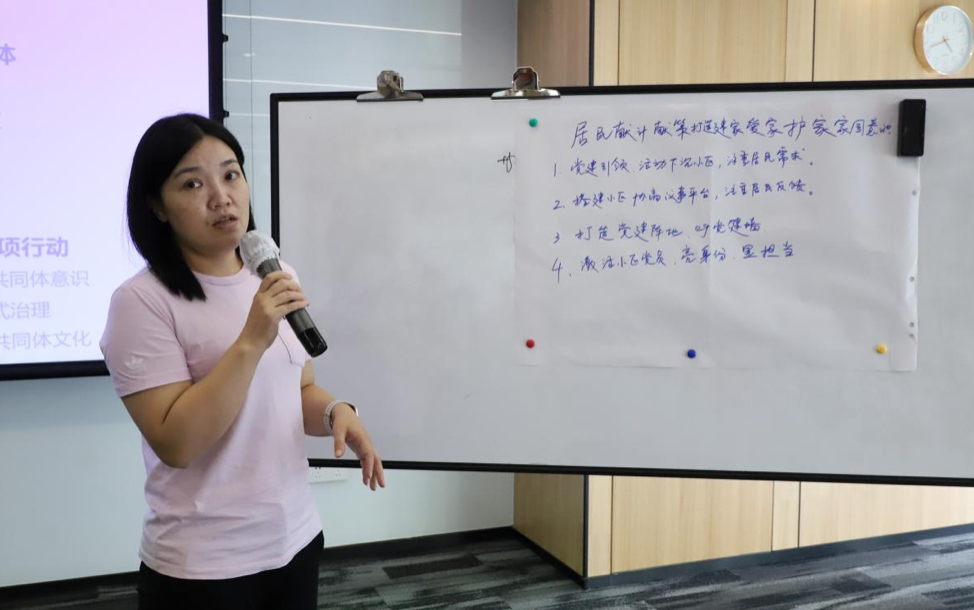 体
项行动
共同体意识
式治理
共同体文化
居民献计献策打造建家爱家护家家国意识
1. 党建引领、活动下沉小区，注重居民需求。
2. 搭建小区协商议事平台，注重居民反馈。
3 打造党建阵地、党建墙
4、激活小区党员、亮身份、显担当